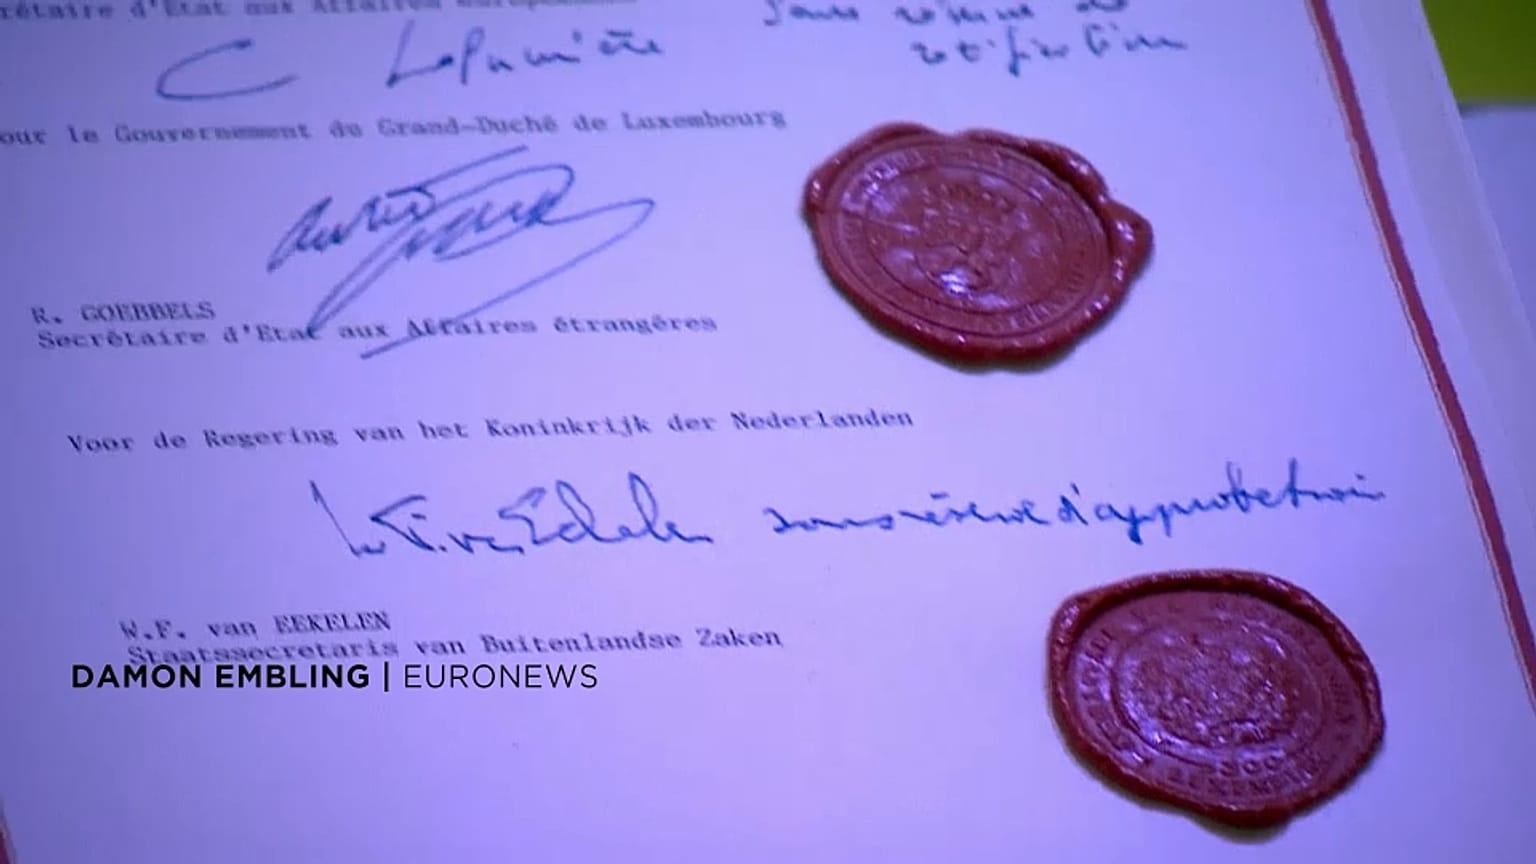 rétaire d'État aux Affaires
C Lalumière
sous réserve de
ratification
our le Gouvernement du Grand-Duché de Luxembourg
R. GOEBBELS
Secrétaire d'Etat aux Affaires étrangères
Voor de Regering van het Koninkrijk der Nederlanden
W.F. van Eekelen sous réserve d'approbation
W.F. van EEKELEN
Staatssecretaris van Buitenlandse Zaken
DAMON EMBLING | EURONEWS